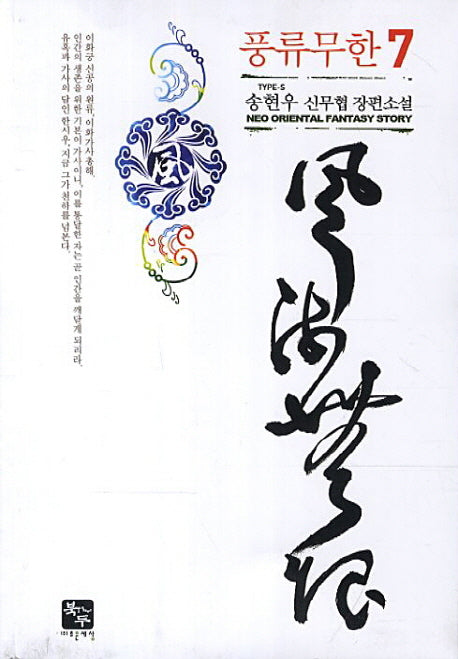 풍류무한 7
TYPE-S
송현우 신무협 장편소설
NEO ORIENTAL FANTASY STORY
이화궁 신공의 원류, 이화가사총해.
인간의 생존을 위한 기본이 가사이니, 이를 통달한 자는 곧 인간을 깨닫게 되리라.
유혹과 가사의 달인 한시우, 지금 그가 천하를 넘본다.
風
風流無限
북두